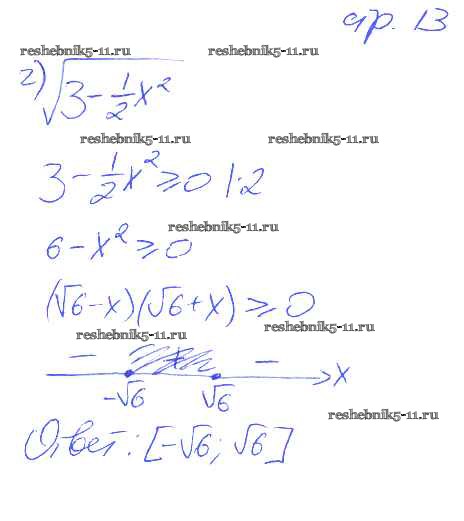 стр. 13
reshebnik5-11.ru reshebnik5-11.ru
г) √(3 - 1/2 x²)
reshebnik5-11.ru reshebnik5-11.ru
3 - 1/2 x² ≥ 0 |·2
reshebnik5-11.ru
6 - x² ≥ 0
(√6 - x)(√6 + x) ≥ 0
reshebnik5-11.ru reshebnik5-11.ru
- + - x
-√6 √6
reshebnik5-11.ru
Ответ: [-√6; √6]